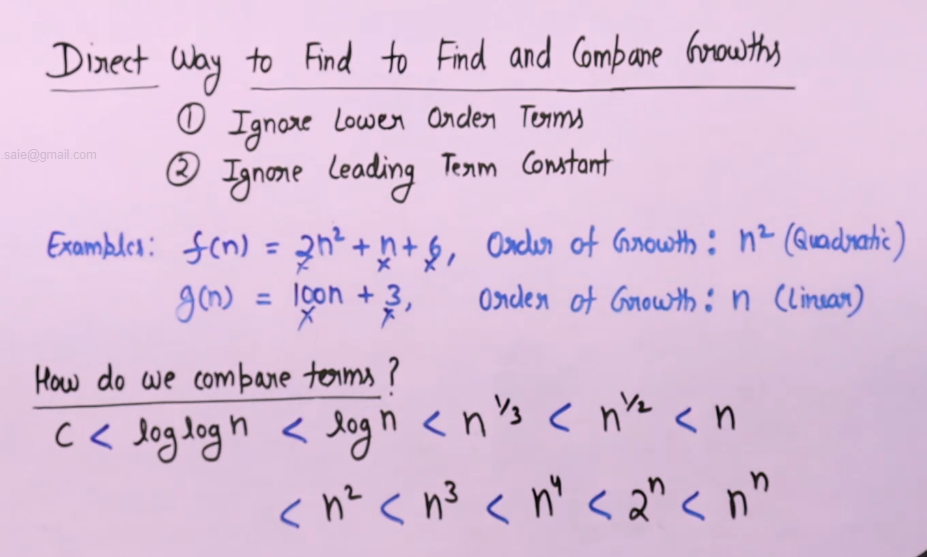 Direct Way to Find to Find and Compare Growths
① Ignore Lower Order Terms
saie@gmail.com
② Ignore Leading Term Constant
Examples: f(n) = 2n² + n + 6, Order of Growth: n² (Quadratic)
g(n) = 100n + 3, Order of Growth: n (Linear)
How do we compare terms?
C < log log n < log n < n^1/3 < n^1/2 < n
< n² < n³ < n⁴ < 2ⁿ < nⁿ